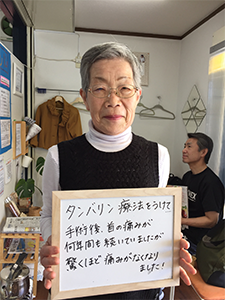 タンバリン療法をうけて
手術後、首の痛みが
何年間も続いていましたが
驚くほど痛みがなくなり
ました！